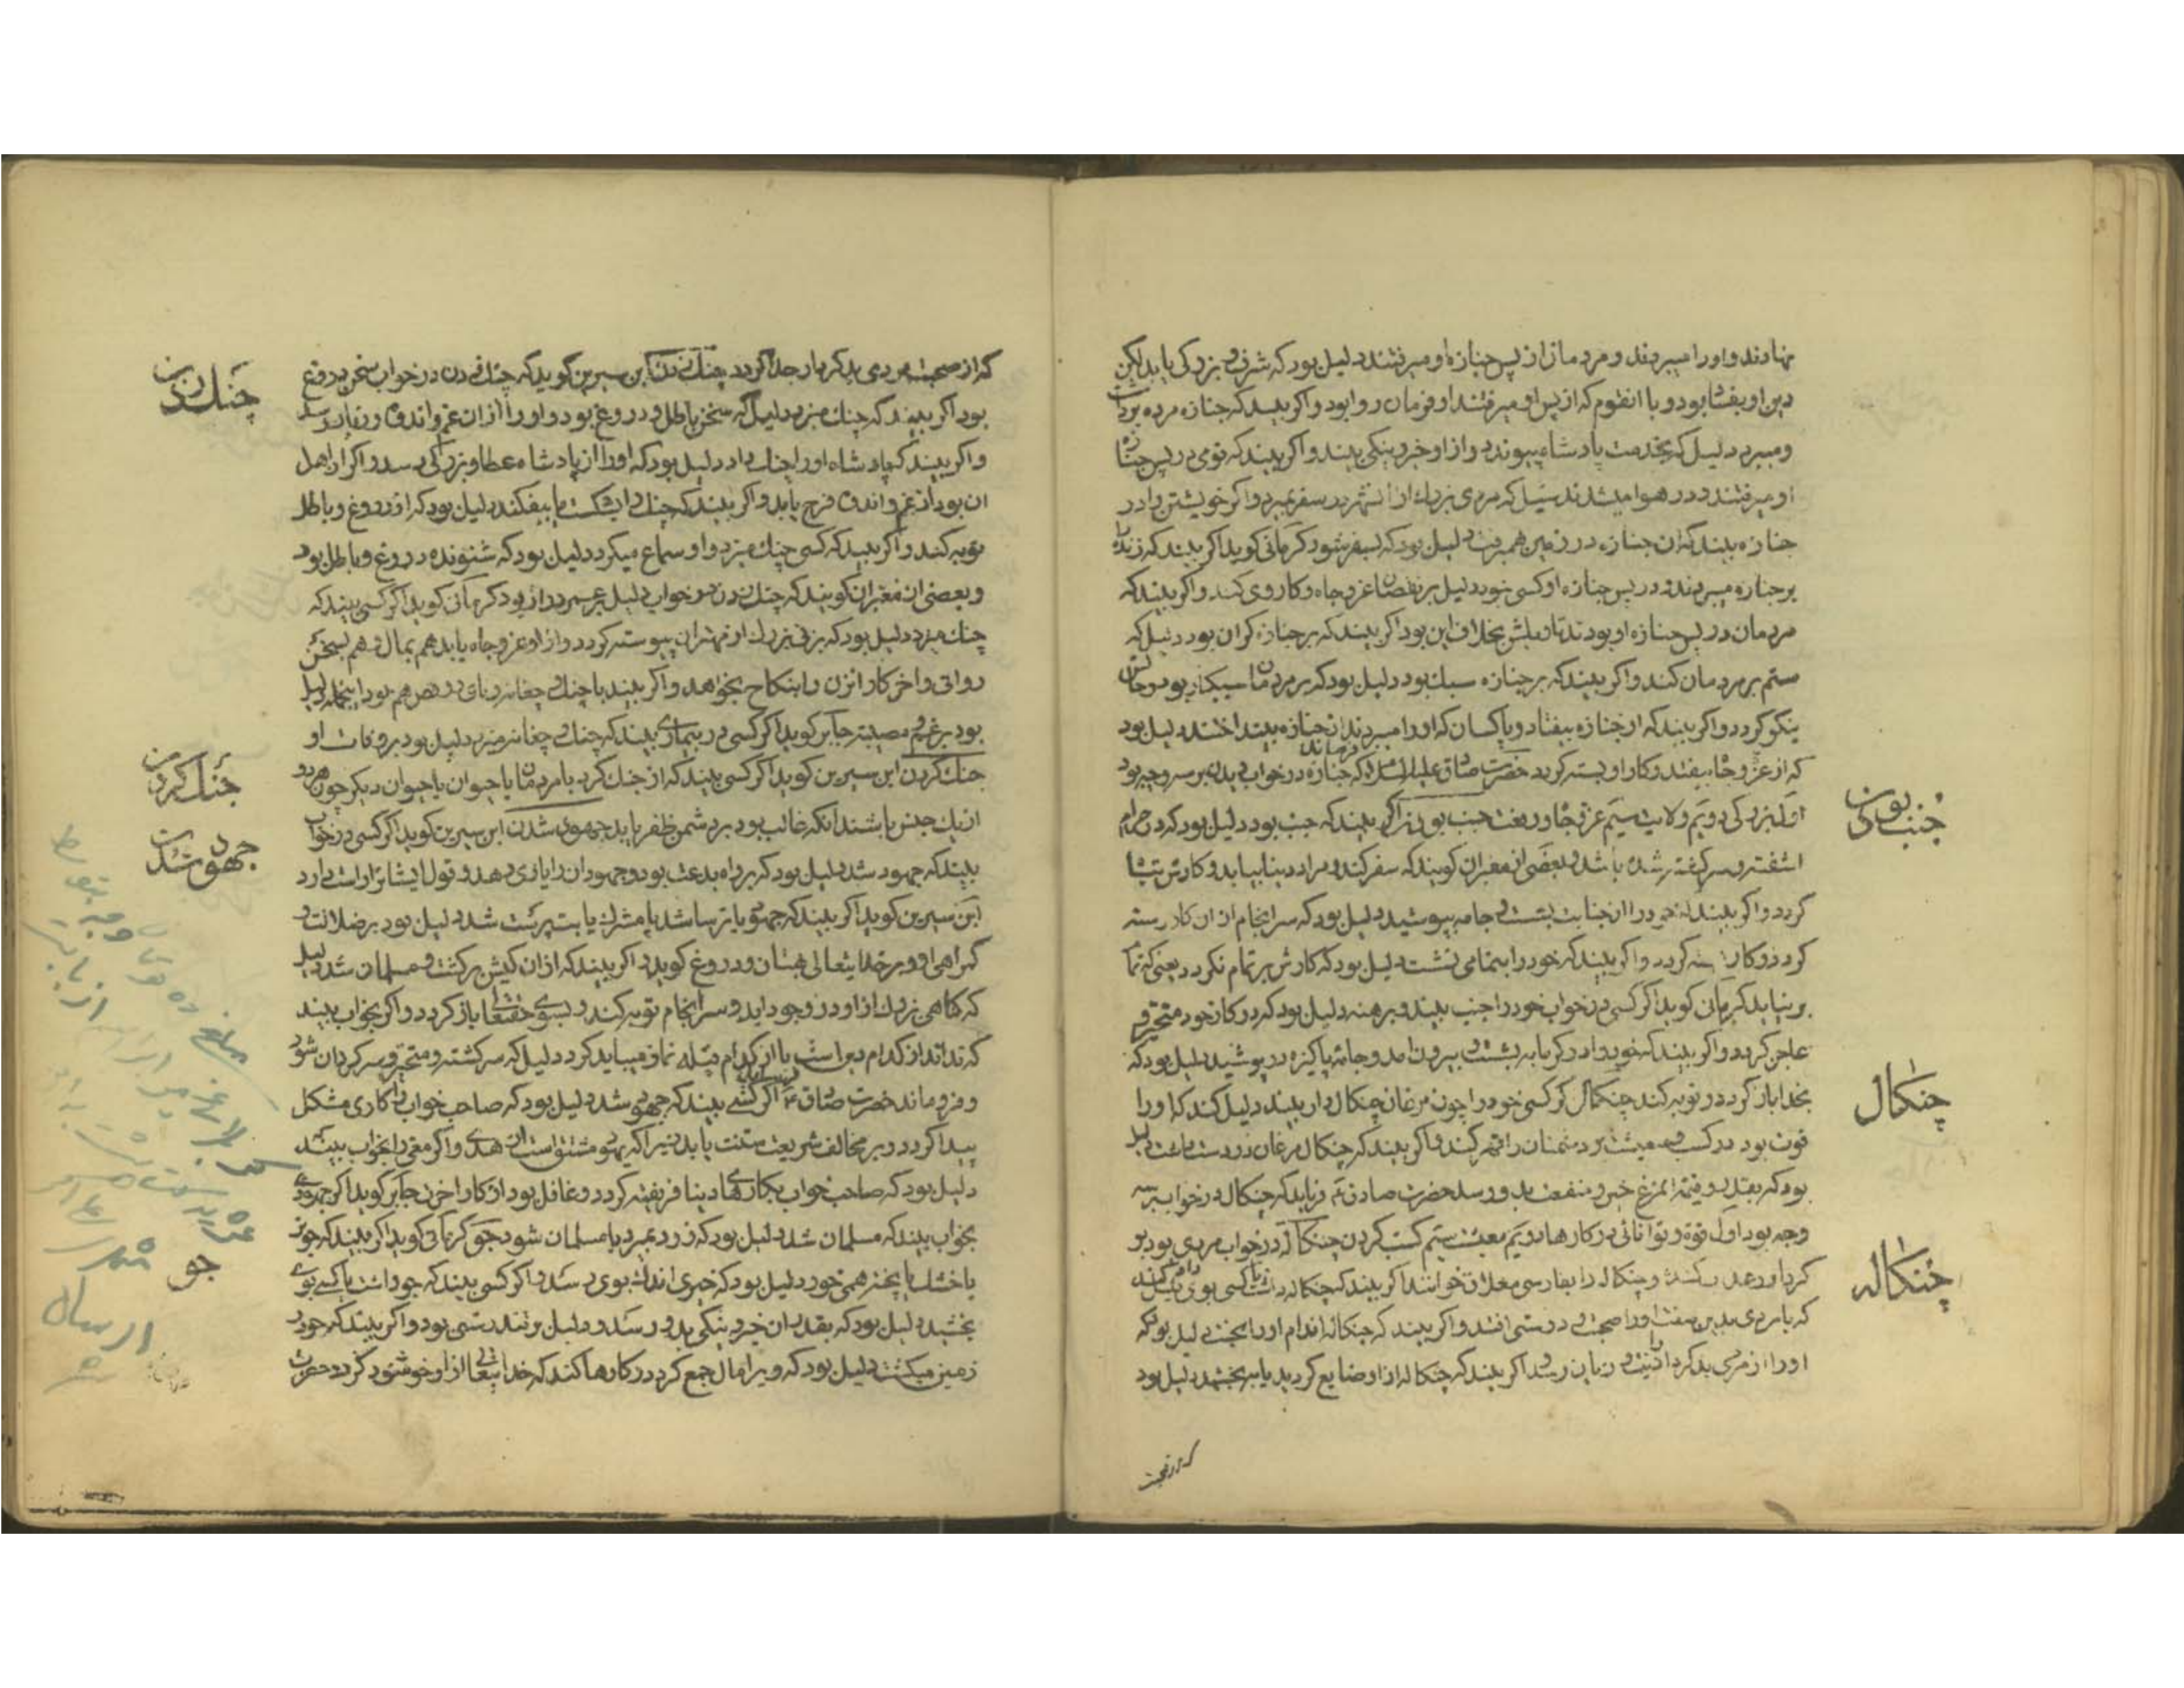 نهادند و او را میبردند و مردمان از پس جنازه او میرفتند دلیل بود که شرف و بزرکی یابد لیکن
دین او بود و با انقوم که از پس او میرفتند او فرمان روا بود و اکر بیند که جنازه مرده
ومیبرد دلیل که بخدمت پادشاه پیوندد و از او خیر و نیکی بیند و اکر بیند که قومی در پس جنازه
او میرفتند و در هوا میشدند که مردی بزرك از آن شهر در سفر بمیرد و اکر خویشتن را در
جنازه بیند که ان جنازه در زمین همی رفت دلیل بود که بسفر شود کرمانی کوید اکر بیند که زنده را
بر جنازه میبردند و در پس جنازه او کسی نبود دلیل بر نقصان عز و جاه و کار وی کند و اکر بیند که
مردمان در پس جنازه او بودند تاویلش بخلاف این بود اکر بیند که بر جنازه کران بود دلیل که
ستم بر مردمان کند و اکر بیند که بر جنازه سبك بود دلیل بود که بر مردمان
نیکو کردد و اکر بیند که از جنازه بیفتاد و یا کسان که او را میبردند از جنازه بینداختند دلیل بود
که از عز و جاه بیفتد و کار او بسته کردد حضرت صادق علیه السلام فرماید که جنازه در خواب دیدن بر سه وجه بود
اول بزرکی دویم ولایت سیم عز و جاه و رفعت جنب بودن اکر بیند که جنب بود دلیل بود که در حرام
اشفته و سر کشته شده باشد و بعضی از معبران کویند که سفر کند و مراد دنیا بیابد و کارش
کردد و اکر بیند که خود را از جنابت بشست و جامه بپوشید دلیل بود که سرانجام از ان کار رسته
کردد و اکر بیند که خود را بتمامی نشست دلیل بود که کارش بر تمام نکردد یعنی که
بر نیاید کرمانی کوید اکر کسی در خواب خود را جنب بیند و برهنه دلیل بود که در کار خود متحیر و
عاجز کردد و اکر بیند که خود را در کرمابه بشست و بیرون امد و جامه پاکیزه در پوشید دلیل بود که
بخدا باز کردد و توبه کند چنکال اکر کسی خود را چون مرغان چنکال دار بیند دلیل کند که او را
قوت بود در کسب و معیشت و بر دشمنان را قهر کند و اکر بیند که چنکال مرغان در دست داشت دلیل
بود که بقدر و قیمة انمرغ خیر و منفعت بدو رسد حضرت صادق ع فرماید که چنکال در خواب بر سه
وجه بود اول قوة و توانائی در کارها دویم معیشت سیم کسب کردن چنکاله در خواب مردی بود
چنکاله را بفارسی خوانند اکر بیند که چنکاله داشت یا کسی بوی داد
که با مردی بدین صفت او را صحبت و دوستی افتد و اکر بیند که چنکاله اندام او را بخست دلیل بود که
او را از مردی بدکردار اذیت و زیان رسد و اکر بیند که چنکاله از او ضایع کردید یا ببخشید دلیل بود
که از صحبت
جنب بودن
چنکال
چنکاله
که از صحبت مردی بدکردار جدا کردد چنك زدن ابن سیرین کوید که چنك زدن در خواب سخن دروغ
بود اکر بیند که چنك میزد دلیل که سخن باطل و دروغ بود و او را از ان غم و اندوه و زیان رسد
و اکر بیند که پادشاه او را چنك داد دلیل بود که او را از پادشاه عطا و بزرکی رسد و اکر از اهل
ان بود از غم و اندوه فرج یابد و اکر بیند که چنك را بشکست یا بیفکند دلیل بود که از دروغ و باطل
توبه کند و اکر بیند که کسی چنك میزد و او سماع میکرد دلیل بود که شنونده دروغ و باطل بود
و بعضی از معبران کویند که چنك زدن در خواب دلیل بر عمر دراز بود کرمانی کوید اکر کسی بیند که
چنك میزد دلیل بود که بزنی بزرك از مهتران پیوسته کردد و از او عز و جاه یابد هم بمال و هم بسخن
روائی و اخر کار انزن را بنکاح بخواهد و اکر بیند با چنك و چغانه و نای و رقص هم بود اینجمله دلیل
بود بر غم و مصیبت جابر کوید اکر کسی در بیماری بیند که چنك و چغانه میزد دلیل بود بر وفات او
جنك کردن ابن سیرین کوید اکر کسی بیند که از جنك کرد با مردمان یا حیوان یا حیوان دیکر چون هر دو
از یك جنس باشند انکه غالب بود بر دشمن ظفر یابد جهود شدن ابن سیرین کوید اکر کسی در خواب
بیند که جهود شد دلیل بود که بر راه بدعت بود و جهودان را یاری دهد و قول ایشانرا راست دارد
ابن سیرین کوید اکر بیند که جهود یا ترسا شد یا مشرك یا بت پرست شد دلیل بود بر ضلالت و
کمراهی او و بر خدایتعالی بهتان و دروغ کوید و اکر بیند که از ان کیش برکشت و مسلمان شد دلیل
که کناهی بزرك از او در وجود اید و سرانجام توبه کند و بسوی حقتعا باز کردد و اکر بخواب بیند
که نداند از کدام دین است یا از کدام قبله نماز میباید کرد دلیل که سرکشته و متحیر و سرکردان شود
و فرو ماند حضرت صادق ع فرماید اکر کسی بیند که جهود شد دلیل بود که صاحب خواب را کاری مشکل
پیدا کردد و بر مخالف شریعت سنت یابد زیرا که یهود مشتق است از هدی و اکر مغی را بخواب بیند
دلیل بود که صاحب خواب بکارهاء دنیا فریفته کردد و غافل بود از کار اخرت جابر کوید اکر جهودی
بخواب بیند که مسلمان شد دلیل بود که زود بمیرد یا مسلمان شود جو کرمانی کوید اکر بیند که جو تر
یا خشك یا پخته همی خورد دلیل بود که خیری اندك بوی رسد و اکر کسی بیند که جو داشت یا کسی بوی
بخشید دلیل بود که بقدر ان خیر و نیکی بدو رسد و دلیل بر تندرستی بود و اکر بیند که جو در
زمین میکشت دلیل بود که ویرا مال جمع کردد و کارها کند که خدایتعالی از او خوشنود کردد حضرت
چنك زدن
جنك کردن
جهود شدن
جو